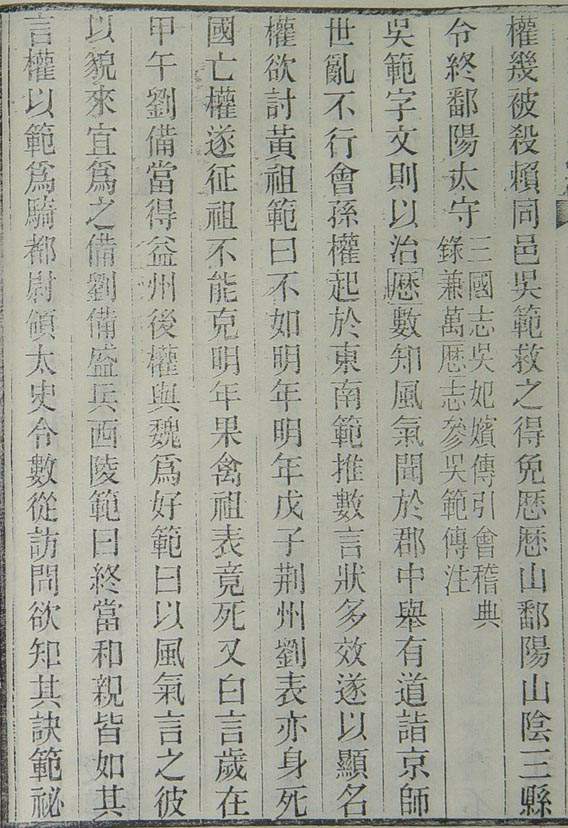 權幾被殺賴同邑吳範救之得免歷歷山鄱陽山陰三縣
令終鄱陽太守
三國志吳妃嬪傳引會稽典
錄兼萬歷志參吳範傳注
吳範字文則以治歷數知風氣聞於郡中舉有道詣京師
世亂不行會孫權起於東南範推數言狀多效遂以顯名
權欲討黃祖範曰不如明年明年戊子荆州劉表亦身死
國亡權遂征祖不能克明年果禽祖表竟死又白言歲在
甲午劉備當得益州後權與魏爲好範曰以風氣言之彼
以貌來宜爲之備劉備盛兵西陵範曰終當和親皆如其
言權以範爲騎都尉領太史令數從訪問欲知其訣範祕